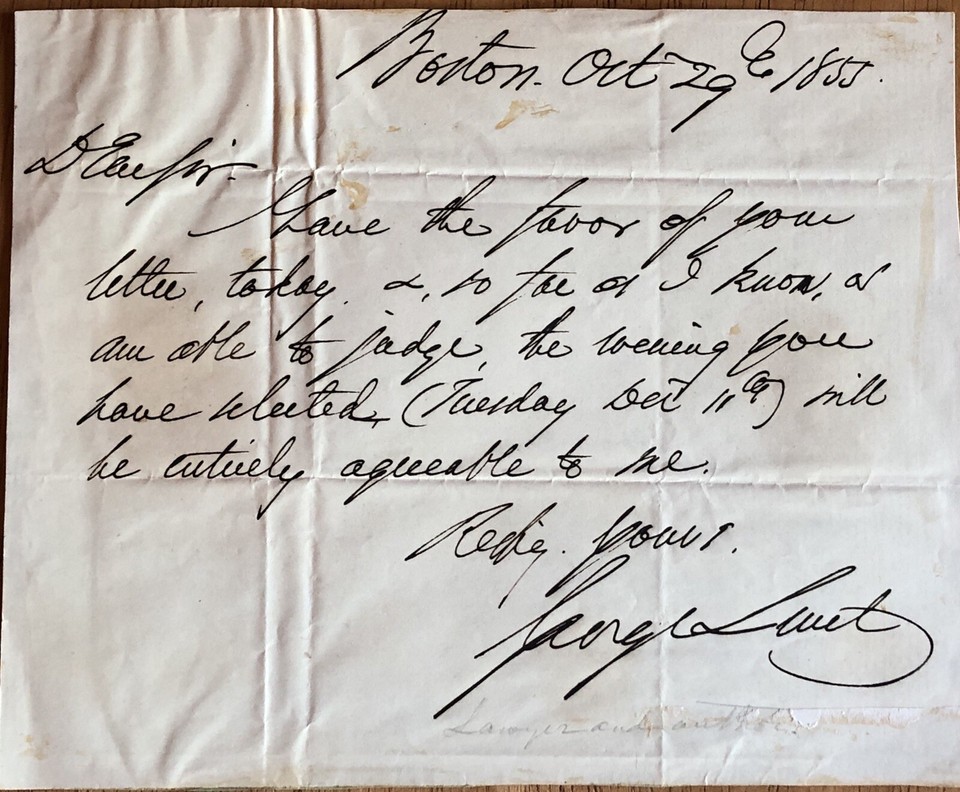 Boston. Oct 29th 1855.
Dear Sir.
I have the favor of your
letter, today, &, so far as I know, or
am able to judge, the evening you
have selected, (Tuesday Dec 11th) will
be entirely agreeable to me.
Respy. yours.
George Lunt
Lawyer and author